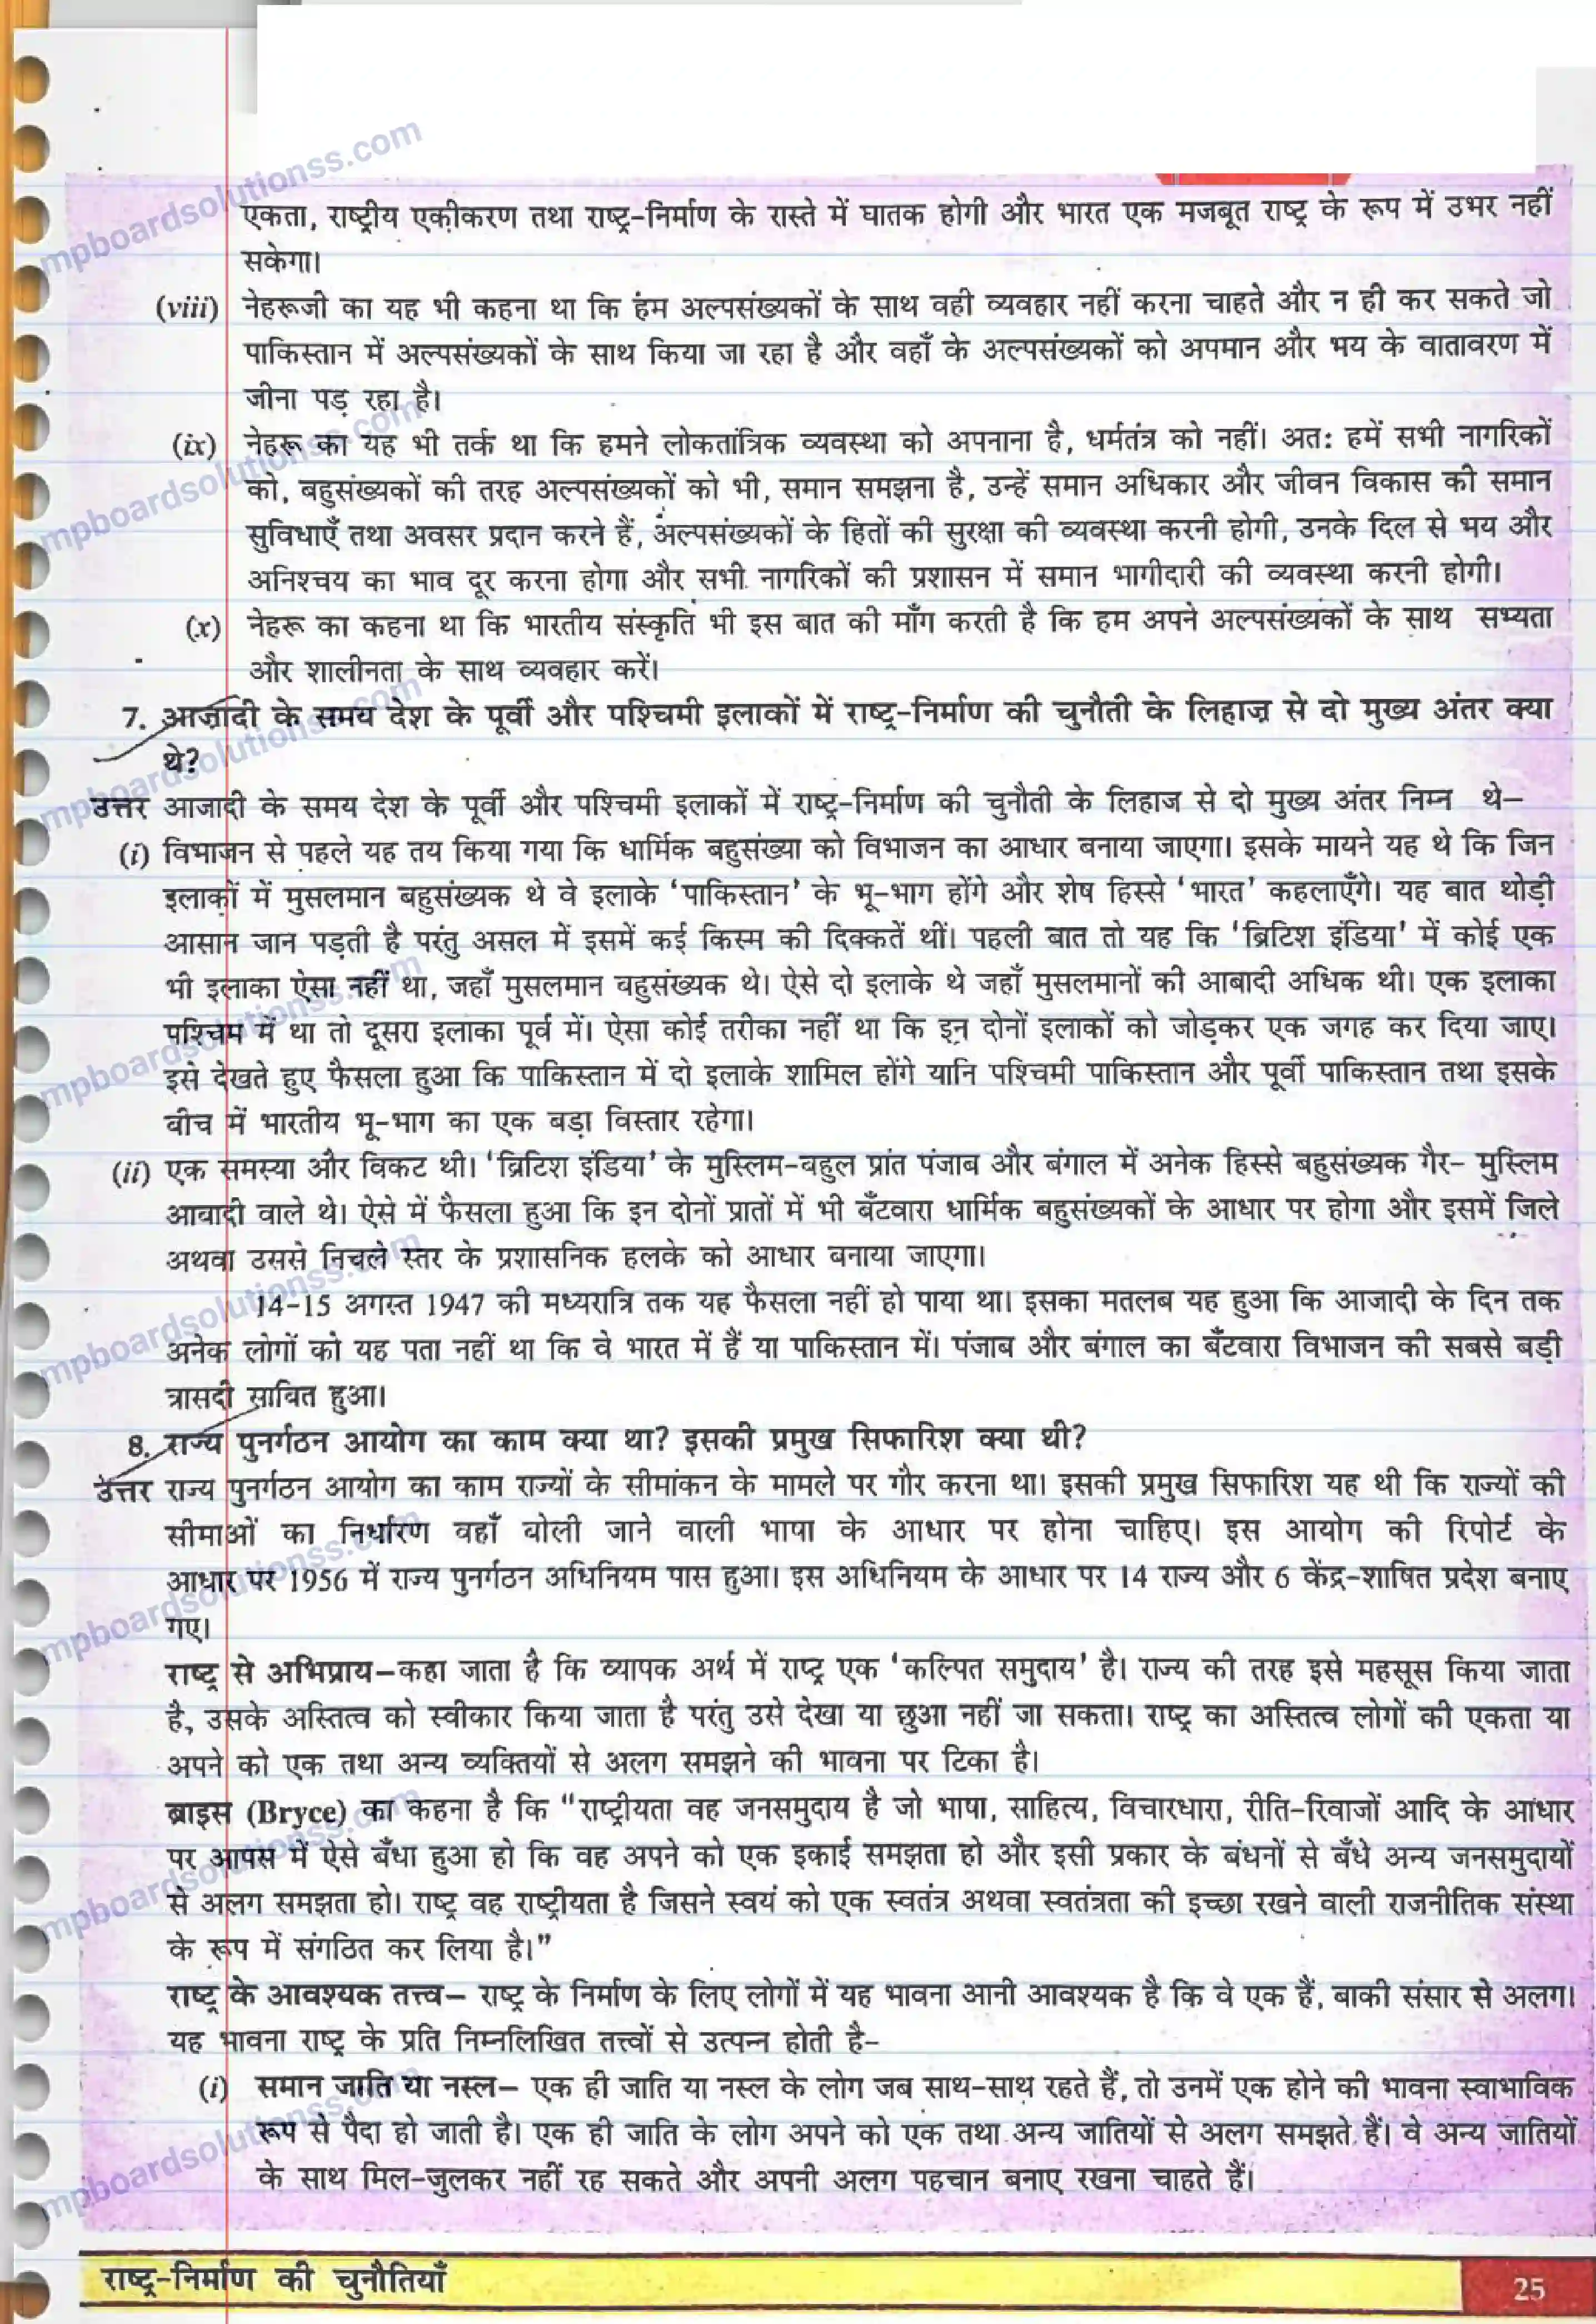 एकता, राष्ट्रीय एकीकरण तथा राष्ट्र-निर्माण के रास्ते में घातक होगी और भारत एक मजबूत राष्ट्र के रूप में उभर नहीं
सकेगा।
(viii) नेहरूजी का यह भी कहना था कि हंम अल्पसंख्यकों के साथ वही व्यवहार नहीं करना चाहते और न ही कर सकते जो
पाकिस्तान में अल्पसंख्यकों के साथ किया जा रहा है और वहाँ के अल्पसंख्यकों को अपमान और भय के वातावरण में
जीना पड़ रहा है।
(ix) नेहरू का यह भी तर्क था कि हमने लोकतांत्रिक व्यवस्था को अपनाना है, धर्मतंत्र को नहीं। अत: हमें सभी नागरिकों
को, बहुसंख्यकों की तरह अल्पसंख्यकों को भी, समान समझना है, उन्हें समान अधिकार और जीवन विकास की समान
सुविधाएँ तथा अवसर प्रदान करने हैं, अल्पसंख्यकों के हितों की सुरक्षा की व्यवस्था करनी होगी, उनके दिल से भय और
अनिश्चय का भाव दूर करना होगा और सभी नागरिकों की प्रशासन में समान भागीदारी की व्यवस्था करनी होगी।
(x) नेहरू का कहना था कि भारतीय संस्कृति भी इस बात की माँग करती है कि हम अपने अल्पसंख्यकों के साथ सभ्यता
और शालीनता के साथ व्यवहार करें।
7. आज़ादी के समय देश के पूर्वी और पश्चिमी इलाकों में राष्ट्र-निर्माण की चुनौती के लिहाज़ से दो मुख्य अंतर क्या
थे?
उत्तर आजादी के समय देश के पूर्वी और पश्चिमी इलाकों में राष्ट्र-निर्माण की चुनौती के लिहाज से दो मुख्य अंतर निम्न थे–
(i) विभाजन से पहले यह तय किया गया कि धार्मिक बहुसंख्या को विभाजन का आधार बनाया जाएगा। इसके मायने यह थे कि जिन
इलाकों में मुसलमान बहुसंख्यक थे वे इलाके 'पाकिस्तान' के भू-भाग होंगे और शेष हिस्से 'भारत' कहलाएँगे। यह बात थोड़ी
आसान जान पड़ती है परंतु असल में इसमें कई किस्म की दिक्कतें थीं। पहली बात तो यह कि 'ब्रिटिश इंडिया' में कोई एक
भी इलाका ऐसा नहीं था, जहाँ मुसलमान बहुसंख्यक थे। ऐसे दो इलाके थे जहाँ मुसलमानों की आबादी अधिक थी। एक इलाका
पश्चिम में था तो दूसरा इलाका पूर्व में। ऐसा कोई तरीका नहीं था कि इन दोनों इलाकों को जोड़कर एक जगह कर दिया जाए।
इसे देखते हुए फैसला हुआ कि पाकिस्तान में दो इलाके शामिल होंगे यानि पश्चिमी पाकिस्तान और पूर्वी पाकिस्तान तथा इसके
बीच में भारतीय भू-भाग का एक बड़ा विस्तार रहेगा।
(ii) एक समस्या और विकट थी। 'ब्रिटिश इंडिया' के मुस्लिम-बहुल प्रांत पंजाब और बंगाल में अनेक हिस्से बहुसंख्यक गैर- मुस्लिम
आबादी वाले थे। ऐसे में फैसला हुआ कि इन दोनों प्रातों में भी बँटवारा धार्मिक बहुसंख्यकों के आधार पर होगा और इसमें जिले
अथवा उससे निचले स्तर के प्रशासनिक हलके को आधार बनाया जाएगा।
14-15 अगस्त 1947 की मध्यरात्रि तक यह फैसला नहीं हो पाया था। इसका मतलब यह हुआ कि आजादी के दिन तक
अनेक लोगों को यह पता नहीं था कि वे भारत में हैं या पाकिस्तान में। पंजाब और बंगाल का बँटवारा विभाजन की सबसे बड़ी
त्रासदी साबित हुआ।
8. राज्य पुनर्गठन आयोग का काम क्या था? इसकी प्रमुख सिफारिश क्या थी?
उत्तर राज्य पुनर्गठन आयोग का काम राज्यों के सीमांकन के मामले पर गौर करना था। इसकी प्रमुख सिफारिश यह थी कि राज्यों की
सीमाओं का निर्धारण वहाँ बोली जाने वाली भाषा के आधार पर होना चाहिए। इस आयोग की रिपोर्ट के
आधार पर 1956 में राज्य पुनर्गठन अधिनियम पास हुआ। इस अधिनियम के आधार पर 14 राज्य और 6 केंद्र-शाषित प्रदेश बनाए
गए।
राष्ट्र से अभिप्राय–कहा जाता है कि व्यापक अर्थ में राष्ट्र एक 'कल्पित समुदाय' है। राज्य की तरह इसे महसूस किया जाता
है, उसके अस्तित्व को स्वीकार किया जाता है परंतु उसे देखा या छुआ नहीं जा सकता। राष्ट्र का अस्तित्व लोगों की एकता या
अपने को एक तथा अन्य व्यक्तियों से अलग समझने की भावना पर टिका है।
ब्राइस (Bryce) का कहना है कि "राष्ट्रीयता वह जनसमुदाय है जो भाषा, साहित्य, विचारधारा, रीति-रिवाजों आदि के आधार
पर आपस में ऐसे बँधा हुआ हो कि वह अपने को एक इकाई समझता हो और इसी प्रकार के बंधनों से बँधे अन्य जनसमुदायों
से अलग समझता हो। राष्ट्र वह राष्ट्रीयता है जिसने स्वयं को एक स्वतंत्र अथवा स्वतंत्रता की इच्छा रखने वाली राजनीतिक संस्था
के रूप में संगठित कर लिया है।"
राष्ट्र के आवश्यक तत्त्व– राष्ट्र के निर्माण के लिए लोगों में यह भावना आनी आवश्यक है कि वे एक हैं, बाकी संसार से अलग।
यह भावना राष्ट्र के प्रति निम्नलिखित तत्त्वों से उत्पन्न होती है-
(i) समान जाति या नस्ल– एक ही जाति या नस्ल के लोग जब साथ-साथ रहते हैं, तो उनमें एक होने की भावना स्वाभाविक
रूप से पैदा हो जाती है। एक ही जाति के लोग अपने को एक तथा अन्य जातियों से अलग समझते हैं। वे अन्य जातियों
के साथ मिल-जुलकर नहीं रह सकते और अपनी अलग पहचान बनाए रखना चाहते हैं।
राष्ट्र-निर्माण की चुनौतियाँ 25
mpboardsolutionss.com
mpboardsolutionss.com
mpboardsolutionss.com
mpboardsolutionss.com
mpboardsolutionss.com
mpboardsolutionss.com
mpboardsolutionss.com
mpboardsolutionss.com